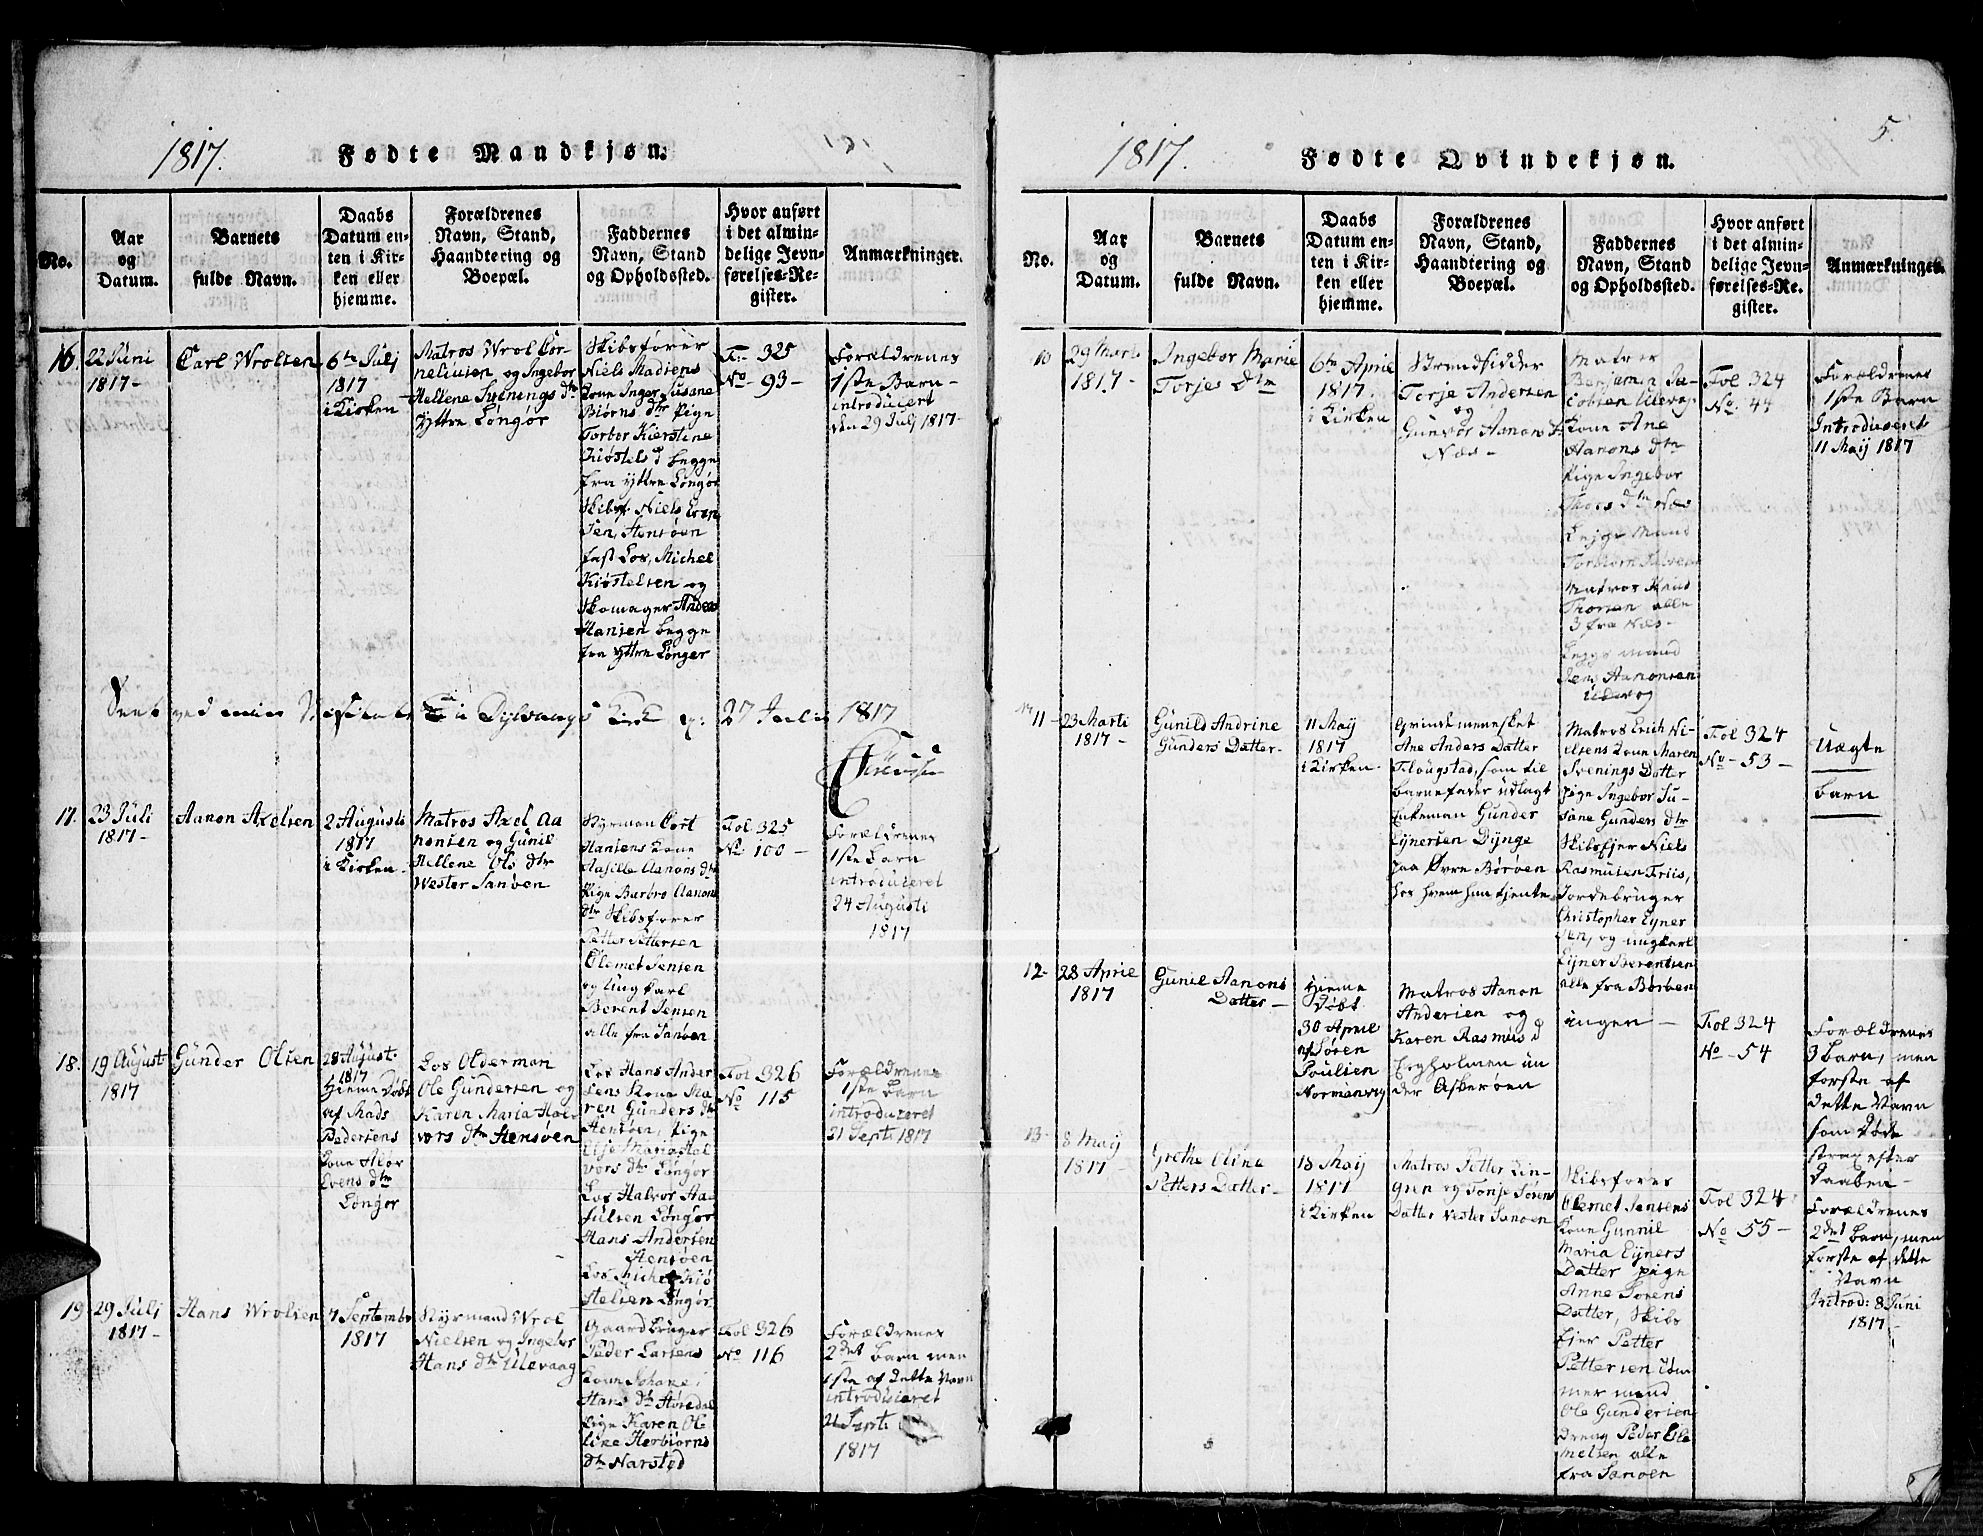 1817.
Fødte Mandkjøn.
No.
Aar
og
Datum.
Barnets
fulde Navn.
Daabs
Datum en-
ten i Kir-
ken eller
hjemme.
Forældrenes
Navn, Stand,
Haandtering og
Boepæl.
Faddernes
Navn, Stand
og Opholdsted.
Hvor anført
i det almin-
delige Jevn-
førelses-Re-
gister.
Anmærkninger.
16.
22 Juni
1817-
Carl Wrolsen
6te Julj
1817
i Kirken
Matros Wrol Cor-
neliusen og Ingebor
Hellene Svenings dtr
Yttre Longør
Skibsfører
Niels Madsens
Kone Inger Susane
Biørns dtr Pige
Torbor Kierstine
Kiøstels d begge
fra Yttre Longør
Skibsf Niels Even
sen, Stensøen
fast Los, Michel
Kiøstelsen og
Skomager Anders
Hansen begge
fra Yttre Longør
Fol 325
No 93-
Forældrenes
1ste Barn-
introduceret
den 29 Julj 1817-
Seet ved min Visitats i Dybvaags Kirke d: 27 Julii 1817
17.
23 Juli
1817-
Aanon Axelsen
2 Augusti
1817
i Kirken-
Matros Axel Aa
nonsen og Gunil
Hellene Ols dtr
Wester Sanøen
Styrman Cort
Hansens Kone
Aasille Aanons dtr
Pige Barbro Aanons
dtr Skibsfører
Petter Pettersen
Clemet Jensen
og Ung Karl
Berent Jensen
alle fra Sanøen
Fol 325
No 100-
Forældrenes
1ste barn
introduceret
24 Augusti
1817
18.
19 August
1817
Gunder Olsen
28 August.
1817
Hieme Døbt
af Mads
Pedersens
Kone Alor
Evens dtr
Longør
Los Olderman
Ole Gundersen og
Karen Maria Hal
vors dtr Stensøen
Los Hans Ander
sens Kone Ma
ren Gunders dtr
Stensøen, Pige
Else Maria Hal
vors dtr Longør
Los Halvor Aa-
sulsen Longør
Hans Andersen
Stensøen
Los Michel Kiø
stelsen Longør
Fol 326
No 115
Forældrenes
1ste Barn
introduceret
21 Sept: 1817
19
29 Juli
1817-
Hans Wrolsen
7 Septembr
1817
Styrmand Wrol
Nielsen og Ingebor
Hans dtr Ulevaag
Gaard bruger
Peder Larsens
Kone Johane
Hans dtr Høredal
Pige Karen Ole
line Herbiørns
dtr Narstød
Fol 326
No 116
Forældrenes
2det barn men
1ste af dette Navn
introduceret
21 Sept:
1817
1817.
Fødte Qvindekjøn.
5
No.
Aar
og
Datum.
Barnets
fulde Navn.
Daabs
Datum en-
ten i Kir-
ken eller
hjemme.
Forældrenes
Navn, Stand,
Haandtering og
Boepæl.
Faddernes
Navn, Stand
og Opholdssted.
Hvor anført
i det almin-
delige Jevn-
førelses-Re-
gister.
Anmærkninger.
10
29 Marti
1817-
Ingebor Marie
Torjes dtr
6te April
1817.
i Kirken
Strandsidder
Torje Andersen
og
Gunvor Aanons d
Næs-
Matros
Benjamin Ja-
cobsen Ulevaag
Kone Ane
Aanons dtr
Pige Ingebor
Thors dtr Næs
Leyge Mand
Torbiørn
Matros Knud
Thorsen alle
3 fra Næs-
Leyge mand
Jens Aanonsen
Ulevog
Fol 324
No. 44
Forældrenes
1ste Barn
Introduceret
11 Maij 1817
11-
23 Marti
1817-
Gunild Andrine
Gunders Datter-
11 Maij
1817
i Kirken-
Qvindemennesket
Ane Anders Datter
Flougstad, som til
barnefader udlagt
Enkeman Gunder
Eynersen Dynge
paa Øvre Børøen
hos hvem hun tjente
Matros Erich Ni-
elsens Kone Maren
Svenings Datter
pige Ingebor Su-
sane Gunders dtr
Skibsfjer Niels
Rasmusen Friis,
Jordebruger
Christopher Eyner
sen, og ungkarl
Eyner Berentsen
alle fra Børøen
Fol 324
No-53-
Uægte
barn
12-
28 Aprile
1817
Gunil Aanons
Datter-
Hieme
Døbt
30 April
af Søren
Poulsen
Normanvig
Matros Aanon
Andersen og
Karen Rasmus d
Ergholmen un
der Askerøen
ingen-
Fol 324
No-54
Forældrenes
3 barn, men
første af
dette Navn
som Døde
strax efter
Daaben-
13-
8 Maij
1817-
Grethe Oline
Petters Datter-
18 Maij
1817
i Kirken
Matros Petter Lin-
gren og Tonje Sørens
Datter Vester Sanøen
Skibsfører
Clemet Jensens
Kone Gunnil
Maria Eyners
Datter pige
Anne Sørens
Datter, Skibs
fjer Petter
Pettersen tøm
mer mand
Ole Gundersen
dreng Peder Cle
metsen alle
fra Sanøen
Fol 324
No 55-
Forældrenes
2det barn, men
første af dette
Navn
Introd: 8 Juni
1817-